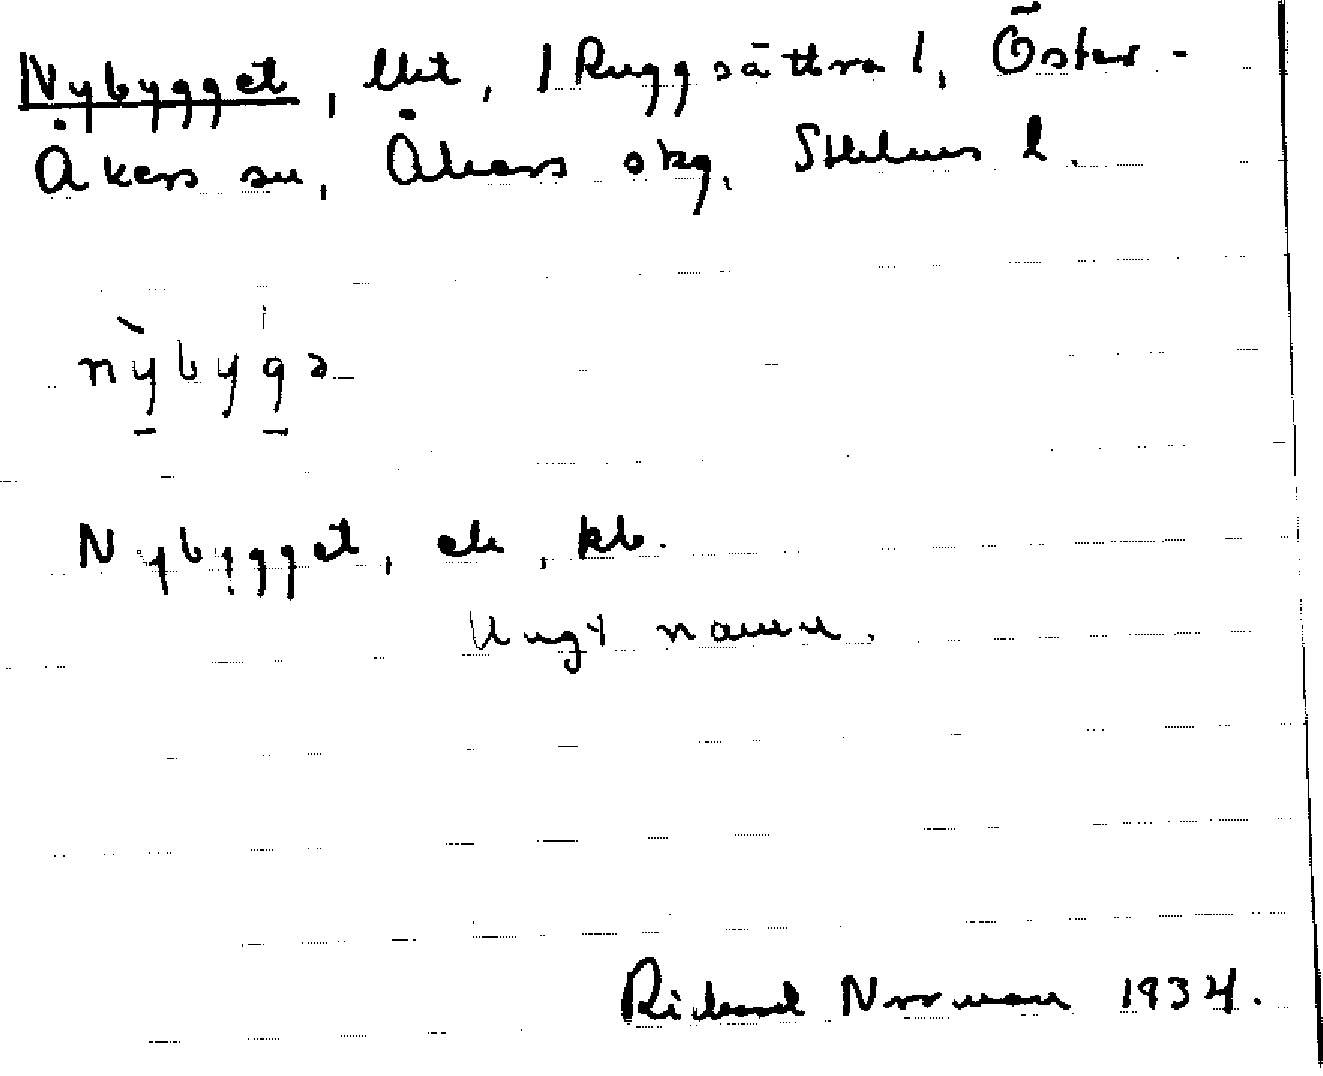 Nybygget, lht, /Ruggsättra/, Öster-
Åkers sn, Åkers skg, Sthlms l.
nỳbygə
Nybygget, ek, kb.
Ungt namn.
Richard Norrman 1934.